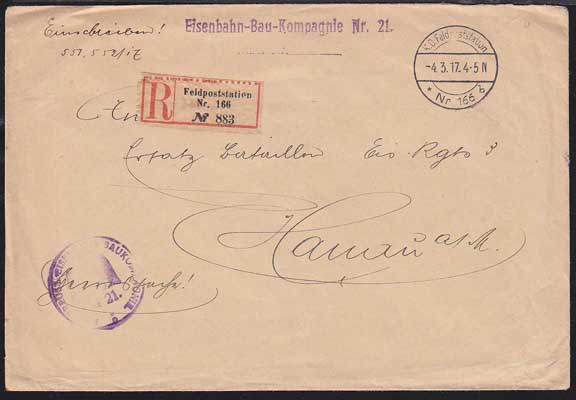 Einschreiben!
551. 552/17
Eisenbahn-Bau-Kompagnie Nr. 21.
K.D.Feldpoststation
-4.3.17.4-5 N
* Nr. 166 b
R
Feldpoststation
Nr. 166
№ 883
An
Ersatz Bataillon Eis Rgts 3
Hanau a/M.
BAUKOMPAGNIE
21.